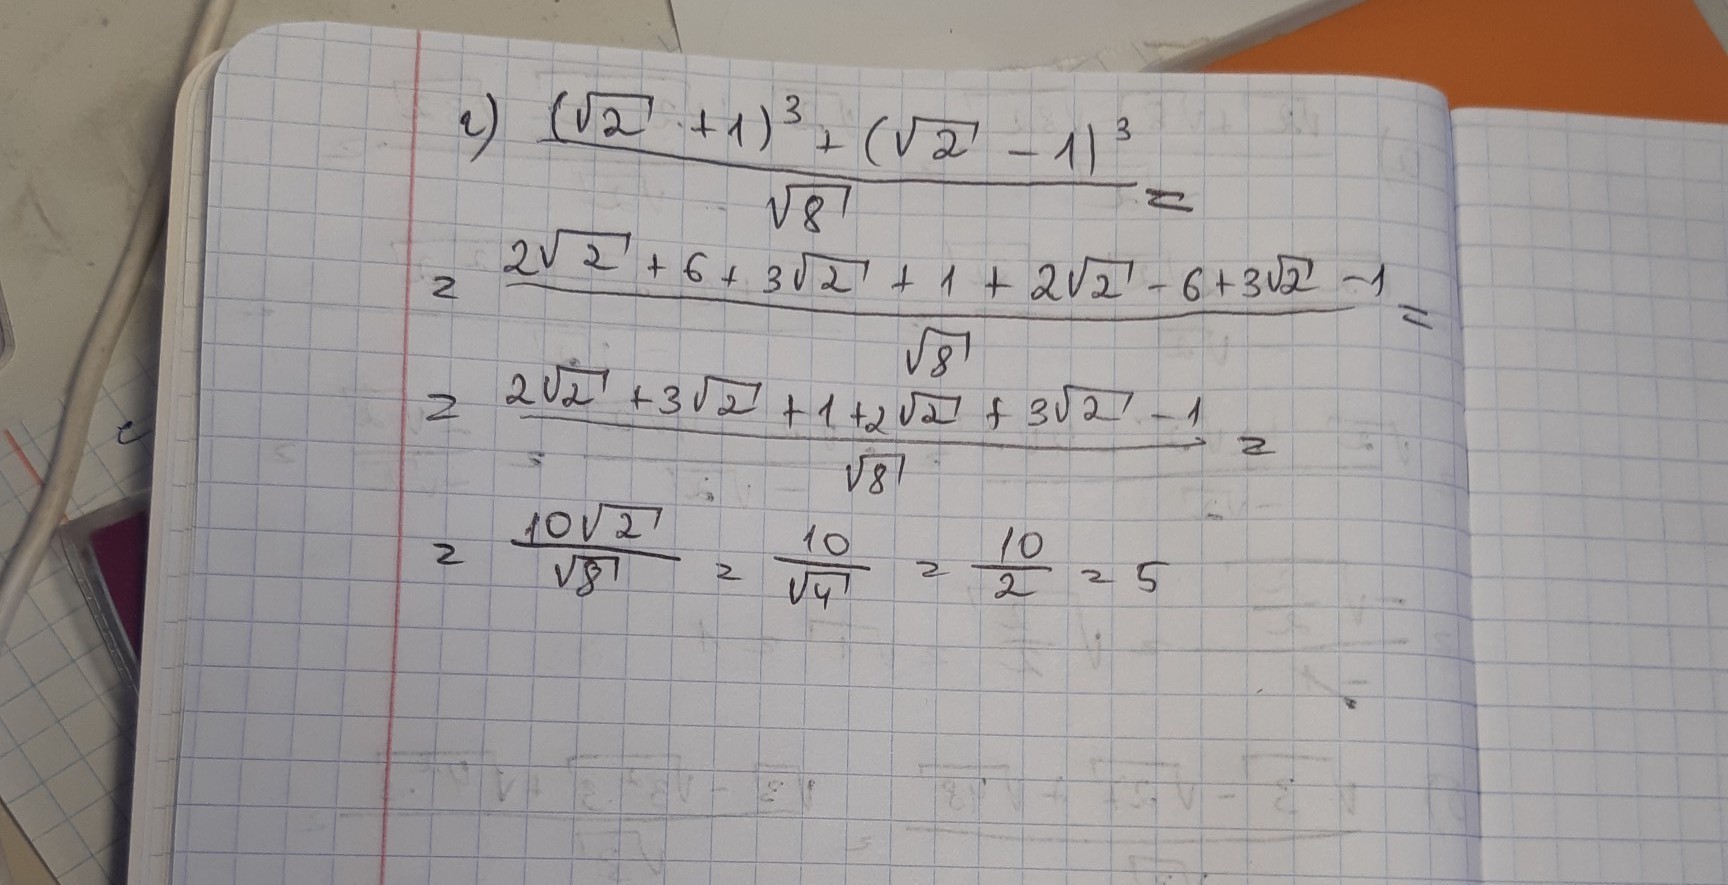 г) ((√2 + 1)³ + (√2 - 1)³) / √8 =
= (2√2 + 6 + 3√2 + 1 + 2√2 - 6 + 3√2 - 1) / √8 =
= (2√2 + 3√2 + 1 + 2√2 + 3√2 - 1) / √8 =
= 10√2 / √8 = 10 / √4 = 10 / 2 = 5